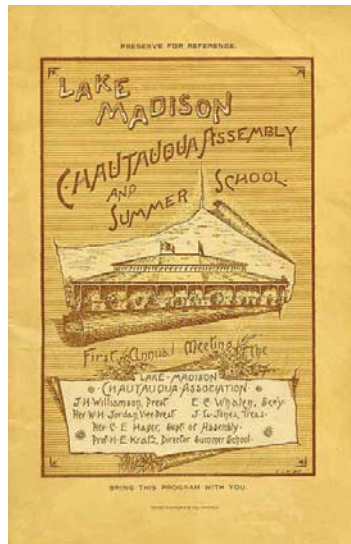 PRESERVE FOR REFERENCE.
LAKE
MADISON
CHAUTAUQUA ASSEMBLY
AND
SUMMER SCHOOL.
First Annual Meeting of the
LAKE-MADISON
CHAUTAUQUA ASSOCIATION.
J.H. Williamson, Prest E.C. Whalen, Sec'y.
Rev. W.H. Jordan, Vice Prest J.W. Jones, Treas.
Rev. C.E. Hager, Supt. of Assembly.
Prof. H.E. Kratz, Director Summer School.
BRING THIS PROGRAM WITH YOU.